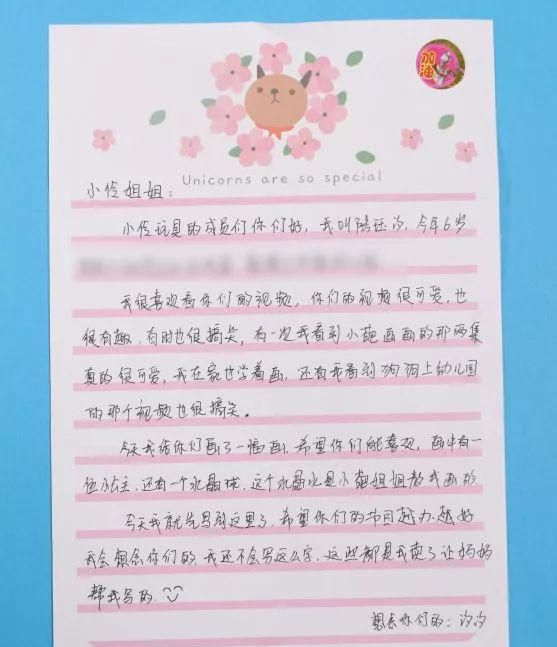 加油
Unicorns are so special
小伶姐姐：
小伶玩具的成员们你们好，我叫陈，今年6岁
我很喜观看你们的视频，你们的视频很可爱，也
很有趣，有时也很搞笑，有一次我看到小葩画画的那两集
真的很可爱，我在家也学着画，还有我看到狗狗上幼儿园
的那个视频也很搞笑。
今天我给你们画了一幅画，希望你们能喜观，画中有一
位小公主，还有一个水晶球，这个水晶球是小葩姐姐教我画的
今天我就先写到这里了，希望你们的节目越办越好
我会想念你们的，我还不会写这么字，这些都是我读了让妈妈
帮我写的
想念你们的：汐汐